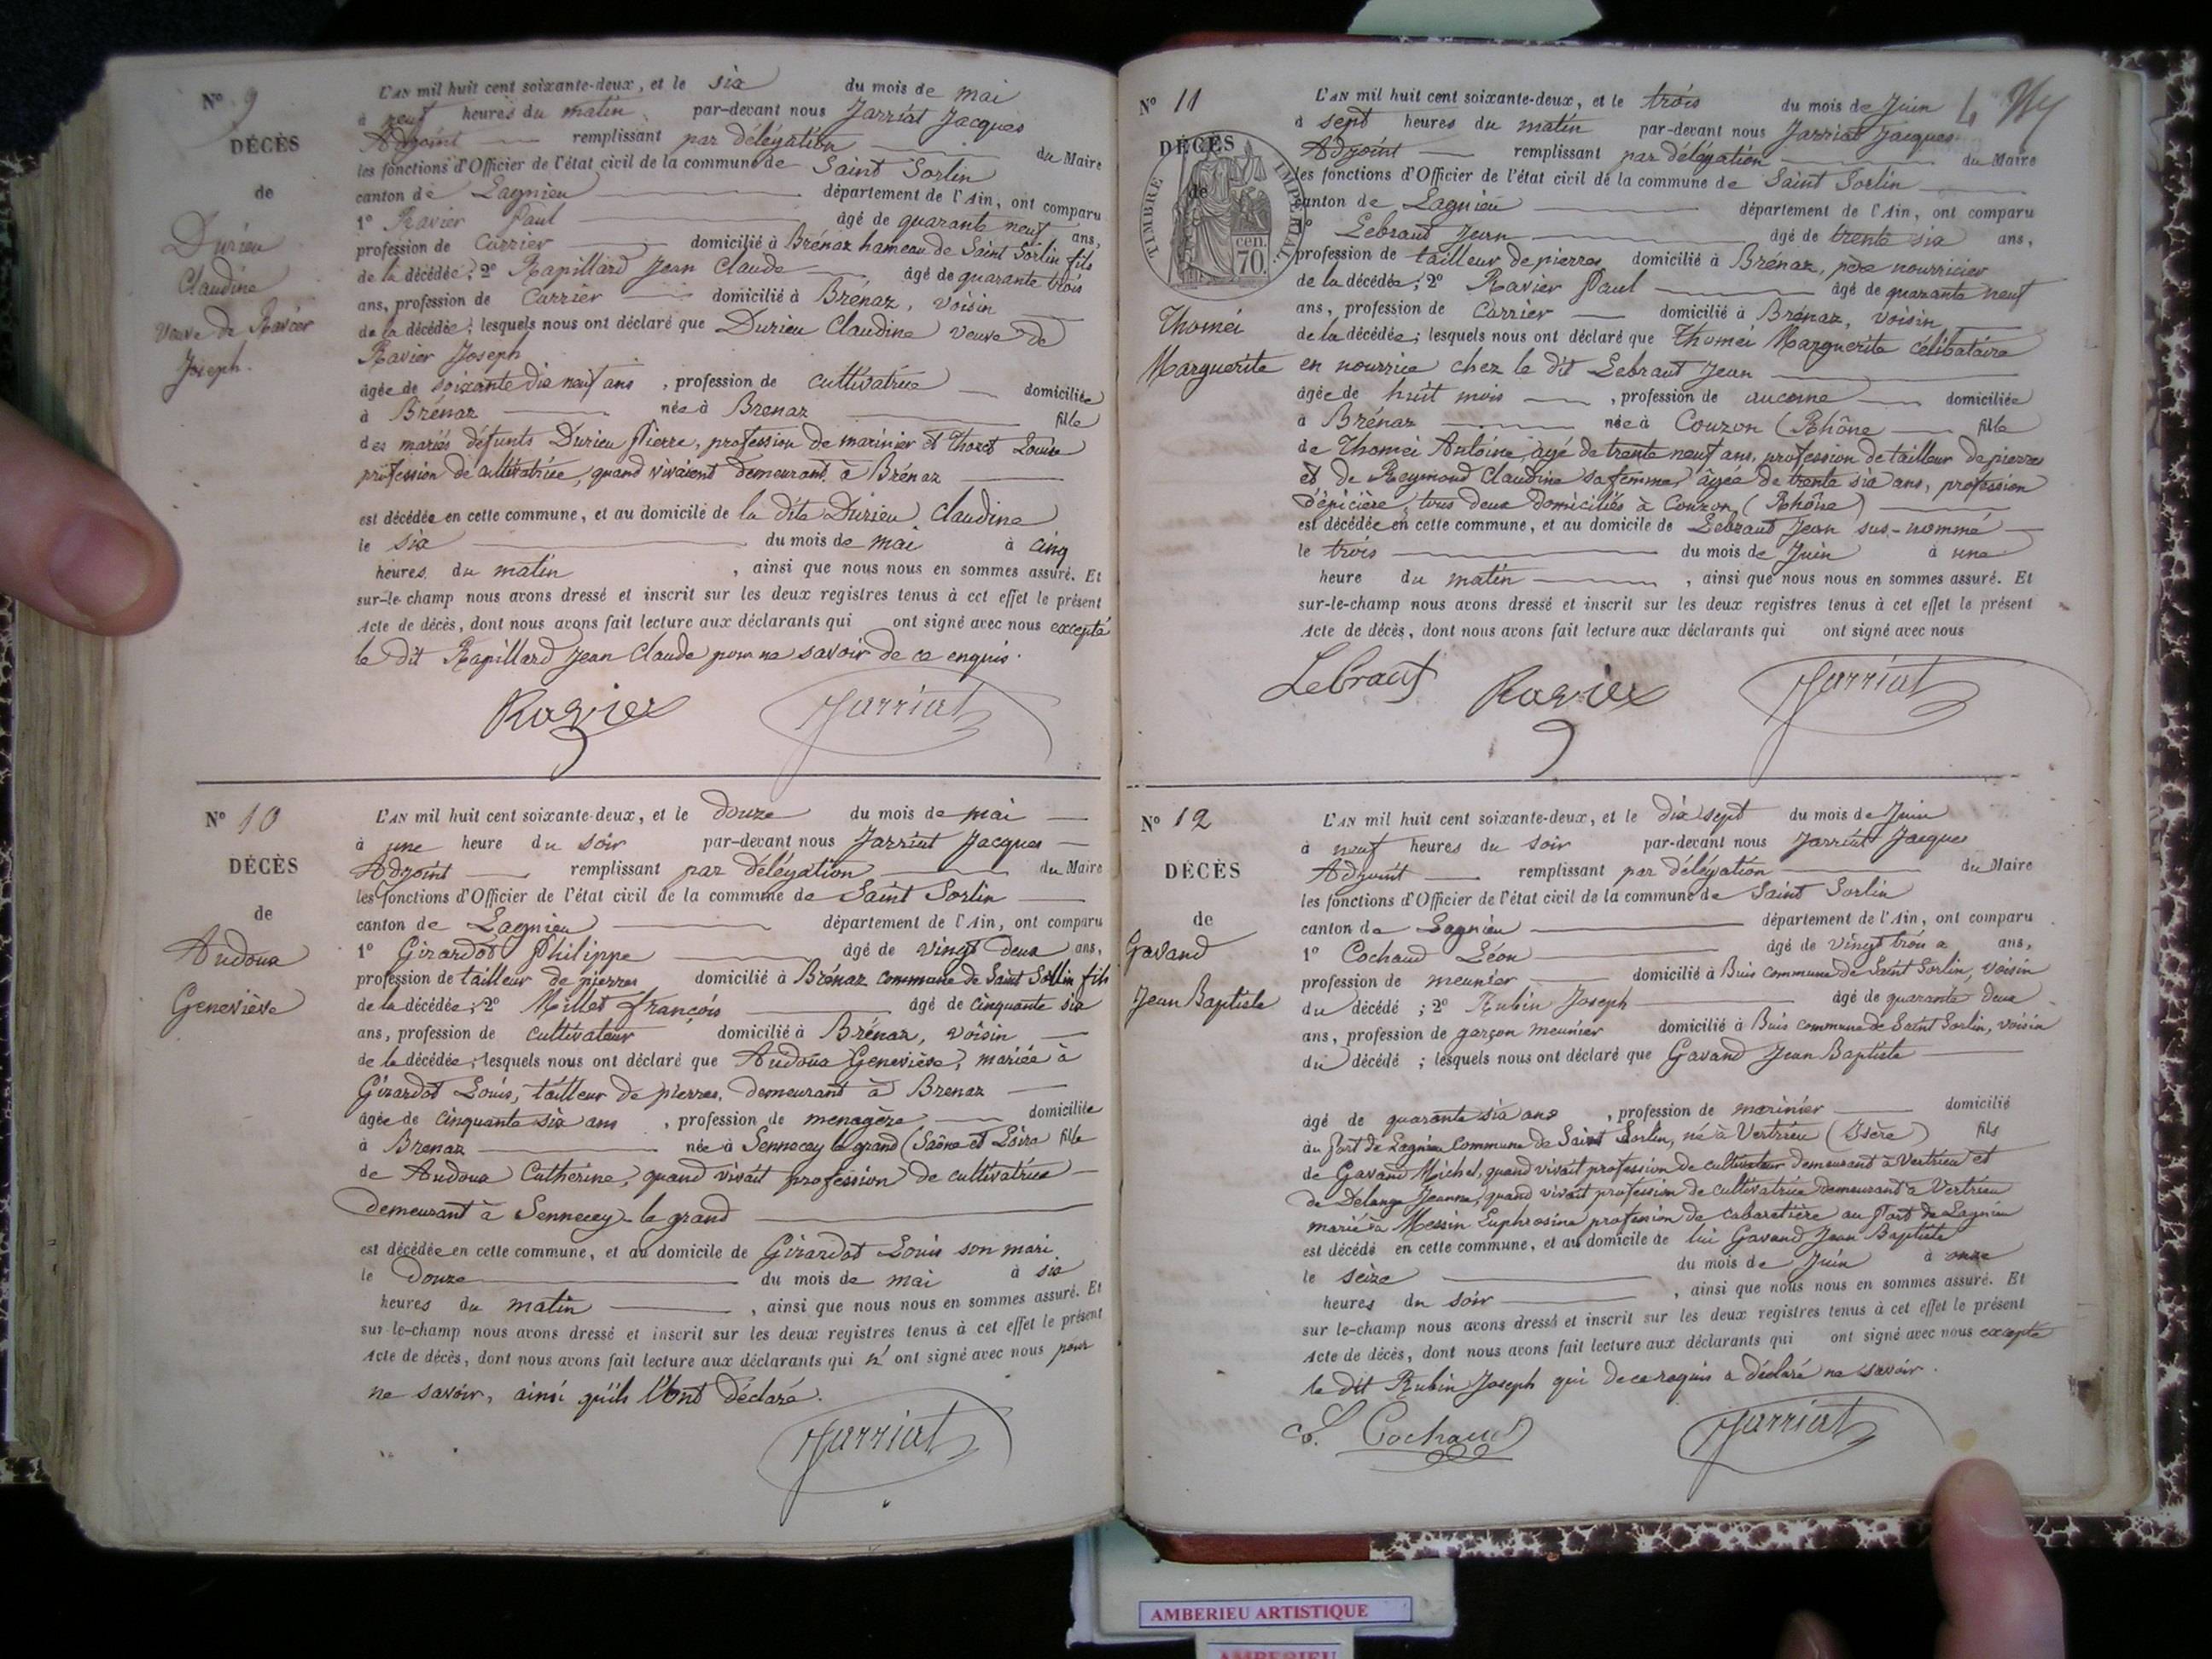 N° 9
DÉCÈS
de
Durieu
Claudine
veuve de Ravier
Joseph.
L'AN mil huit cent soixante-deux, et le six du mois de mai
à neuf heures du matin par-devant nous Jarriat Jacques
Adjoint remplissant par délégation du Maire
les fonctions d'Officier de l'état civil de la commune de Saint Sorlin
canton de Lagnieu département de l'Ain, ont comparu
1° Ravier Paul âgé de quarante neuf ans,
profession de Carrier domicilié à Brénaz hameau de Saint Sorlin fils
de la décédée; 2° Rapillard Jean Claude âgé de quarante trois
ans, profession de Carrier domicilié à Brénaz, voisin
de la décédée; lesquels nous ont déclaré que Durieu Claudine veuve de
Ravier Joseph
âgée de soixante dix neuf ans, profession de cultivatrice domiciliée
à Brénaz née à Brenaz fille
des mariés défunts Durieu Pierre, profession de marinier et Thozet Louise
profession de cultivatrice, quand vivaient demeurant à Brénaz
est décédée en cette commune, et au domicile de la dite Durieu Claudine
le six du mois de mai à cinq
heures du matin, ainsi que nous nous en sommes assuré. Et
sur-le-champ nous avons dressé et inscrit sur les deux registres tenus à cet effet le présent
Acte de décès, dont nous avons fait lecture aux déclarants qui ont signé avec nous excepté
le dit Rapillard Jean Claude pour ne savoir de ce enquis.
Ravier Jarriat
N° 10
DÉCÈS
de
Audoux
Geneviève
L'AN mil huit cent soixante-deux, et le douze du mois de mai
à une heure du soir par-devant nous Jarriat Jacques
Adjoint remplissant par délégation du Maire
les fonctions d'Officier de l'état civil de la commune de Saint Sorlin
canton de Lagnieu département de l'Ain, ont comparu
1° Girardot Philippe âgé de vingt deux ans,
profession de tailleur de pierres domicilié à Brénaz commune de Saint Sorlin fils
de la décédée; 2° Millet françois âgé de cinquante six
ans, profession de cultivateur domicilié à Brénaz, voisin
de la décédée; lesquels nous ont déclaré que Audoux Geneviève, mariée à
Girardot Louis, tailleur de pierres, demeurant à Brenaz
âgée de cinquante six ans, profession de menagère domiciliée
à Brenaz née à Sennecey le grand (Saône et Loire fille
de Audoux Catherine, quand vivait profession de cultivatrice
demeurant à Sennecey-le grand
est décédée en cette commune, et au domicile de Girardot Louis son mari
le Douze du mois de mai à six
heures du matin, ainsi que nous nous en sommes assuré. Et
sur-le-champ nous avons dressé et inscrit sur les deux registres tenus à cet effet le présent
Acte de décès, dont nous avons fait lecture aux déclarants qui n' ont signé avec nous pour
ne savoir, ainsi qu'ils l'Ont déclaré.
Jarriat
N° 11
DÉCÈS
de
TIMBRE IMPÉRIAL
cen.
70.
Thomei
Marguerite
L'AN mil huit cent soixante-deux, et le trois du mois de Juin
à sept heures du matin par-devant nous Jarriat Jacques
Adjoint remplissant par délégation du Maire
les fonctions d'Officier de l'état civil de la commune de Saint Sorlin
canton de Lagnieu département de l'Ain, ont comparu
1° Lebraud Jean âgé de trente six ans,
profession de tailleur de pierres domicilié à Brénaz, père nourricier
de la décédée; 2° Ravier Paul âgé de quarante neuf
ans, profession de Carrier domicilié à Brénaz, voisin
de la décédée; lesquels nous ont déclaré que Thomei Marguerite célibataire
en nourrice chez le dit Lebraut Jean
âgée de huit mois, profession de aucune domiciliée
à Brénaz née à Couzon (Rhône fille
de Thomei Antoine, agé de trente neuf ans, profession de tailleur de pierres
et de Reymond Claudine sa femme, âgée de trente six ans, profession
d'épicière, tous deux domiciliés à Couzon (Rhône)
est décédée en cette commune, et au domicile de Lebraud Jean sus-nommé
le trois du mois de Juin à une
heure du matin, ainsi que nous nous en sommes assuré. Et
sur-le-champ nous avons dressé et inscrit sur les deux registres tenus à cet effet le présent
Acte de décès, dont nous avons fait lecture aux déclarants qui ont signé avec nous
Lebraut Ravier Jarriat
N° 12
DÉCÈS
de
Gavand
Jean Baptiste
L'AN mil huit cent soixante-deux, et le dix sept du mois de Juin
à neuf heures du soir par-devant nous Jarriat Jacques
Adjoint remplissant par délégation du Maire
les fonctions d'Officier de l'état civil de la commune de Saint Sorlin
canton de Lagnieu département de l'Ain, ont comparu
1° Cochaud Léon âgé de vingt trois ans,
profession de meunier domicilié à Buis commune de Saint Sorlin, voisin
du décédé; 2° Rubin Joseph âgé de quarante deux
ans, profession de garçon meunier domicilié à Buis commune de Saint Sorlin, voisin
du décédé; lesquels nous ont déclaré que Gavand Jean Baptiste
âgé de quarante six ans, profession de marinier domicilié
au port de Lagnieu commune de Saint Sorlin, né à Vertrieu (Isère) fils
de Gavand Michel, quand vivait profession de cultivateur demeurant à Vertrieu et
de Delange Jeanne, quand vivait profession de cultivatrice demeurant à Vertrieu
marié à Messin Euphrosine profession de cabaretière au Port de Lagnieu
est décédé en cette commune, et au domicile de lui Gavand Jean Baptiste
le seize du mois de Juin à onze
heures du soir, ainsi que nous nous en sommes assuré. Et
sur le-champ nous avons dressé et inscrit sur les deux registres tenus à cet effet le présent
Acte de décès, dont nous avons fait lecture aux déclarants qui ont signé avec nous excepté
le dit Rubin Joseph qui de ce requis a déclaré ne savoir.
L. Cochaud Jarriat
AMBERIEU ARTISTIQUE
AMBERIEU